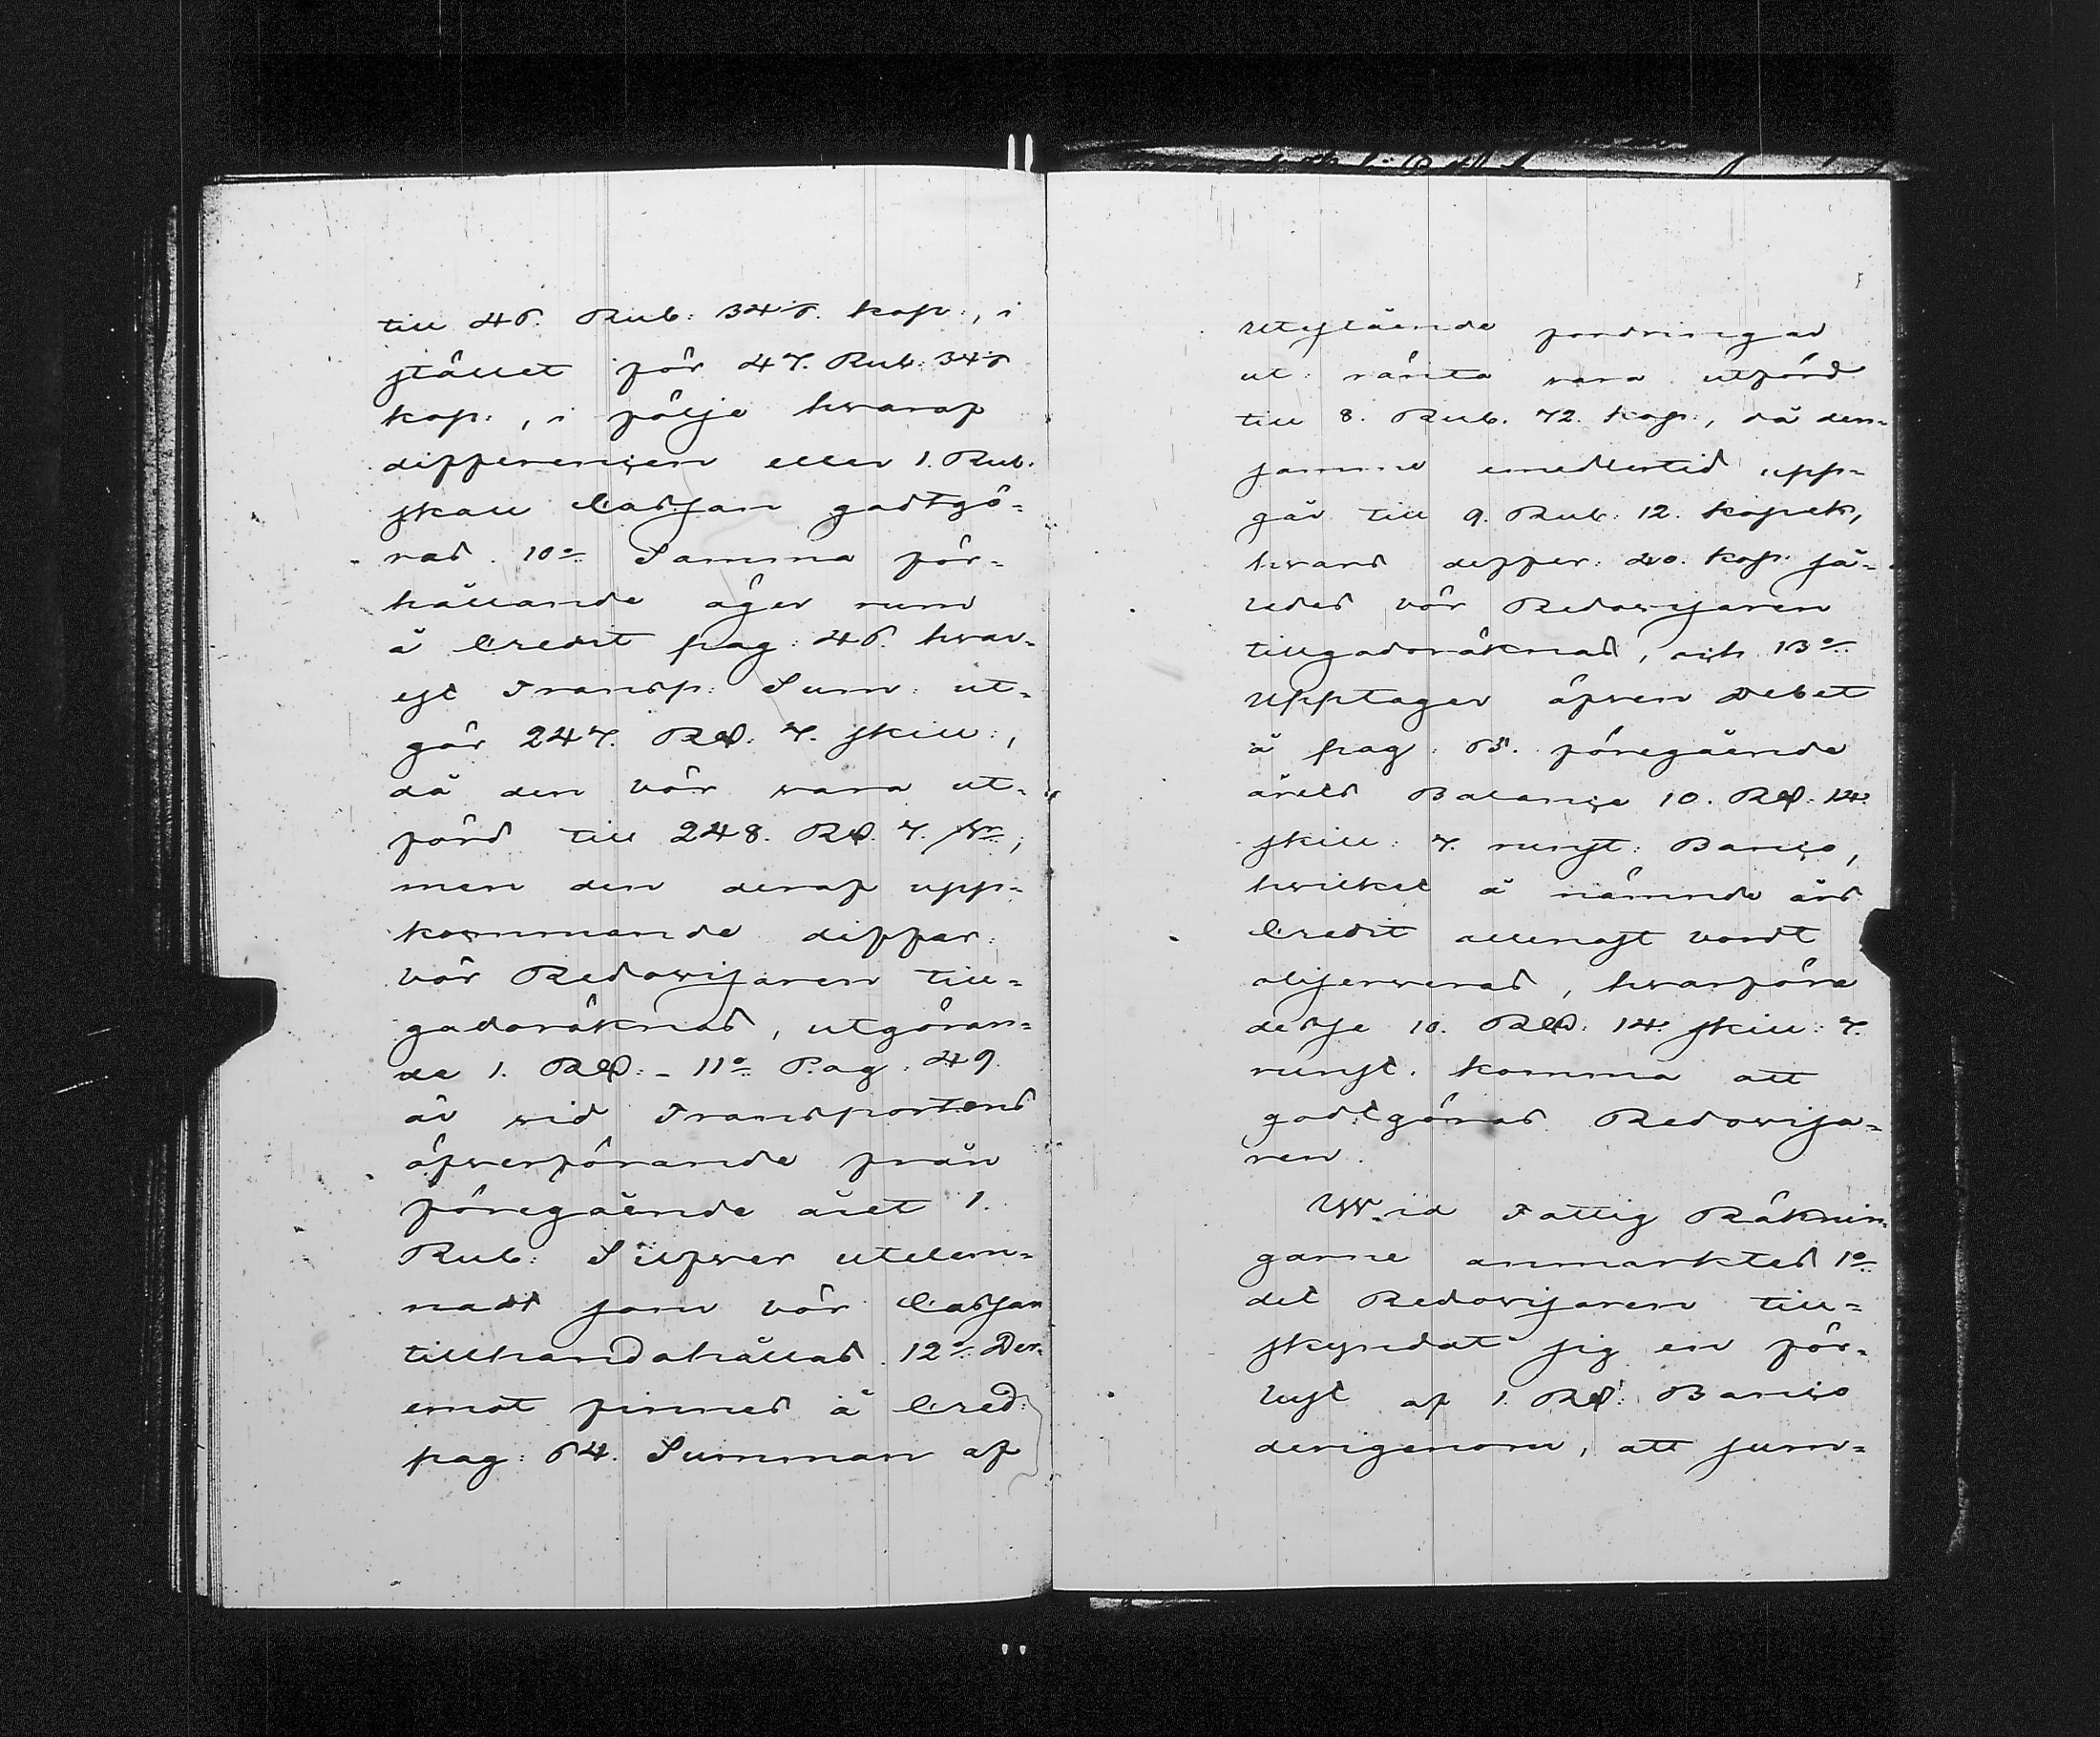 till 46. Rub: 34 6/7. kop:, i
stället för 47. Rub: 34 6/7
kop:, i följe hwaraf
differencen eller 1. Rub.
skall Cassan godtgö-
ras. 10o. Samma för-
hållande äger rum
å Credit pag: 46. hwar-
est Transp: Sum: ut-
gör 247. Rd: 7. skill:,
då den bör wara ut-
förd till 248. Rd. 7. s.,
men den deraf upp-
kommande differ:
bör Redowisaren till-
godoräknas, utgöran-
de 1. Rd: - 11o. Pag: 49.
är wid Transportens
öfwerförande från
föregående året 1.
Rub: Silfwer utelem-
nadt som bör Cassan
tillhandahållas. 12o. Der-
emot finnes å Cred:
pag: 64. Summan af
Utestående fordringar
ut: ränta vara utförd
till 8. Rub. 72. kop:, då den-
samme emedlertid upp-
går till 9. Rub: 12. kopek,
hwars differ: 40. kop: så-
ledes bör Redowisaren
tillgodoräknas, och 13o.
Upptager äfwen Debet
å pag: 65. föregående
årets Balance 10. Rd: 14.
skill: 7. runst: Banco,
hwilket å nämnde års
Credit allenast bordt
observeras, hwarföre
desse 10. Rd: 14. skill: 7.
runst. komma att
godtgöras Redowisa-
ren.
Wid Fattig Räknin-
garne anmärktes 1o.
det Redowisaren till-
skyndat sig en för-
lust af 1. Rd: Banco
derigenom, att sum-